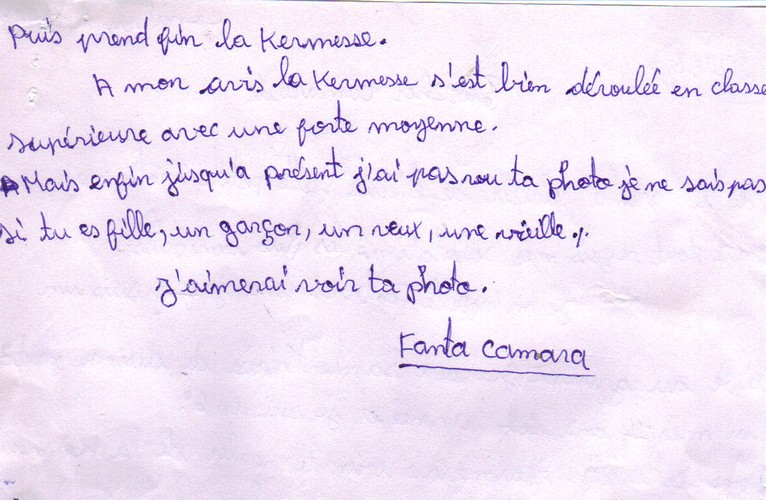 Puis prend fin la Kermesse.
A mon avis la Kermesse s'est bien déroulée en classe
supérieure avec une forte moyenne.
Mais enfin jusqu'a présent j'ai pas vou ta photo je ne sais pas
si tu es fille, un garçon, un veux, une vieille.
J'aimerai voir ta photo.
Fanta Camara